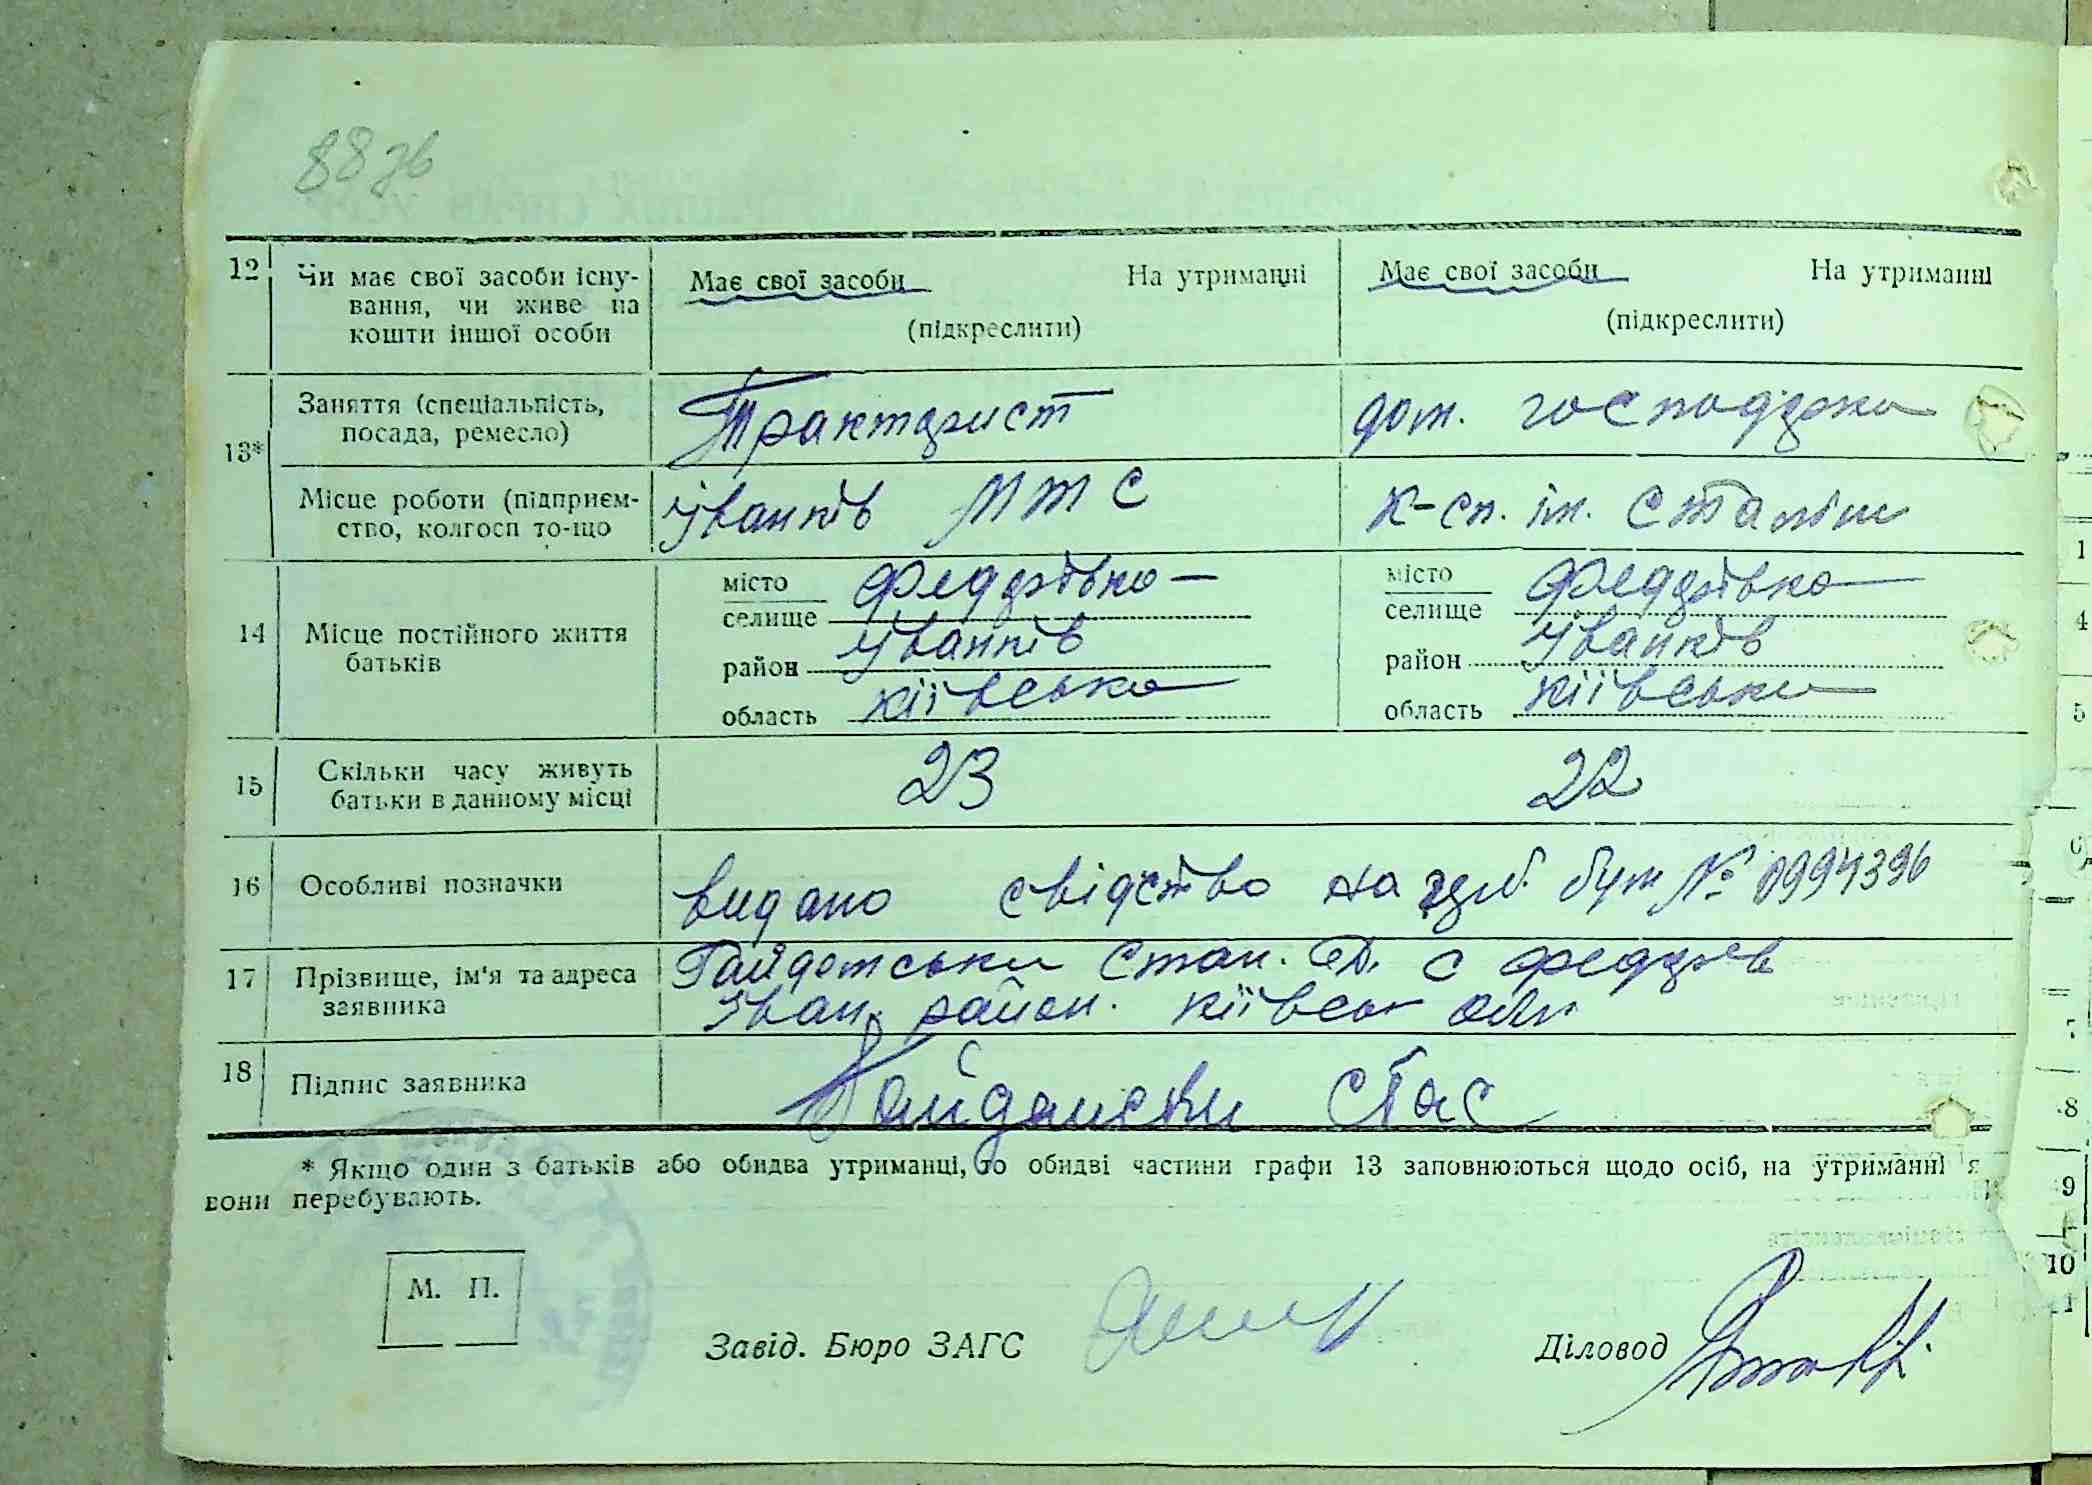 88 зв
12 Чи має свої засоби існу-
вання, чи живе на
кошти іншої особи
Має свої засоби На утриманні
(підкреслити)
Має свої засоби На утриманні
(підкреслити)
13* Заняття (спеціальність,
посада, ремесло)
Трактарист
дом. господарка
Місце роботи (підприєм-
ство, колгосп то-що
Іванків МТС
к-сп. ім. Сталіна
14 Місце постійного життя
батьків
місто
селище
Федорівка
район Іванків
область київська
місто
селище
Федорівка
район Іванків
область київська
15 Скільки часу живуть
батьки в данному місці
23
22
16 Особливі позначки
видано свідство на бут № 0994396
17 Прізвище, ім'я та адреса
заявника
Гайдамський Стан. с Федорів
Іван. район. київськ обл
18 Підпис заявника
Стас
* Якщо один з батьків або обидва утриманці, то обидві частини графи 13 заповнюються щодо осіб, на утриманні я
вони перебувають.
М. П.
Завід. Бюро ЗАГС
Діловод
1
4
5
6
7
8
9
10
11